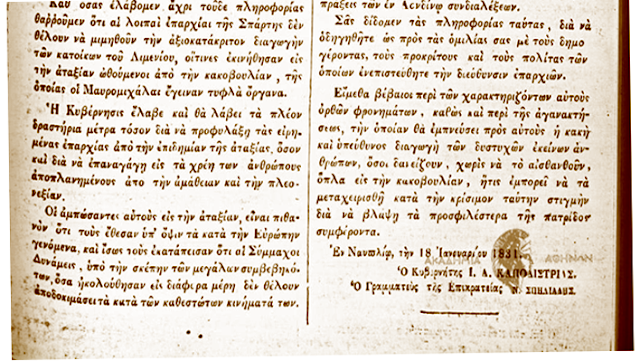 Καθ' ὅσας ἐλάβομεν ἄχρι τοῦδε πληροφορίας
θαῤῥοῦμεν ὅτι αἱ λοιπαὶ ἐπαρχίαι τῆς Σπάρτης δὲν
θέλουν νὰ μιμηθοῦν τὴν ἀξιοκατάκριτον διαγωγὴν
τῶν κατοίκων τοῦ Λιμενίου, οἵτινες ἐκινήθησαν εἰς
τὴν ἀταξίαν ὠθούμενοι ἀπὸ τὴν κακοβουλίαν, τῆς
ὁποίας οἱ Μαυρομιχάλαι ἔγειναν τυφλὰ ὄργανα.
Ἡ Κυβέρνησις ἔλαβε καὶ θὰ λάβει τὰ πλέον
δραστήρια μέτρα τόσον διὰ νὰ προφυλάξῃ τὰς εἰρη-
μένας ἐπαρχίας ἀπὸ τὴν ἐπιδημίαν τῆς ἀταξίας, ὅσον
καὶ διὰ νὰ ἐπαναγάγῃ εἰς τὰ χρέη των ἀνθρώπους
ἀποπλανημένους ἀπὸ τὴν ἀμάθειαν καὶ τὴν πλεο-
νεξίαν.
Οἱ ἀμπώσαντες αὐτοὺς εἰς τὴν ἀταξίαν, εἶναι πιθα-
νὸν ὅτι τοὺς ἔθεσαν ὑπ' ὄψιν τὰ κατὰ τὴν Εὐρώπην
γενόμενα, καὶ ἴσως τοὺς ἐκατάπεισαν ὅτι αἱ Σύμμαχοι
Δυνάμεις, ὑπὸ τὴν σκέπην τῶν μεγάλων συμβεβηκό-
των, ὅσα ἠκολούθησαν εἰς διάφορα μέρη δὲν θέλουν
ἀποδοκιμάσει τὰ κατὰ τῶν καθεστώτων κινήματά των.
πράξεις τῶν ἐν
συνδιαλέξεων.
Σᾶς δίδομεν τὰς πληροφορίας ταύτας, διὰ νὰ
ὁδηγηθῆτε ὡς πρὸς τὰς ὁμιλίας σας μὲ τοὺς δημο
γέροντας, τοὺς προκρίτους καὶ τοὺς πολίτας τῶν
ὁποίων ἐνεπιστεύθητε τὴν διεύθυνσιν ἐπαρχιῶν.
Εἴμεθα βέβαιοι περὶ τῶν χαρακτηριζόντων αὐτοὺς
ὀρθῶν φρονημάτων, καθὼς καὶ περὶ τῆς ἀγανακτή-
σεως, τὴν ὁποίαν θὰ ἐμπνεύσει πρὸς αὐτοὺς ἡ κακὴ
καὶ ὑπεύθυνος διαγωγὴ τῶν δυστυχῶν ἐκείνων ἀν-
θρώπων, ὅσοι δανείζουν, χωρὶς νὰ τὸ αἰσθανθοῦν,
ὅπλα εἰς τὴν κακοβουλίαν, ἥτις ἐμπορεῖ νὰ τὰ
μεταχειρισθῇ κατὰ τὴν κρίσιμον ταύτην στιγμὴν
διὰ νὰ βλάψῃ τὰ προσφιλέστερα τῆς πατρίδος
συμφέροντα.
Ἐν Ναυπλίῳ, τὴν 18 Ἰανουαρίου 1831.
ΑΚΑΔΗΜΙΑ ΑΘΗΝΩΝ
Ὁ Κυβερνήτης Ι. Α. ΚΑΠΟΔΙΣΤΡΙΑΣ.
Ὁ Γραμματεὺς τῆς Ἐπικρατείας Ν. ΣΠΗΛΙΑΔΗΣ.